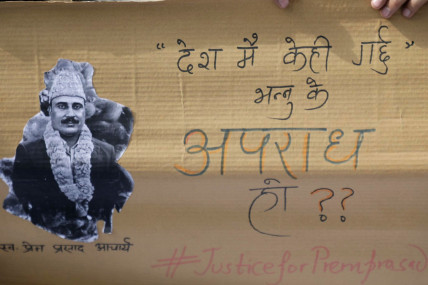 "देश मै केही गर्छु"
भन्नु के
अपराध
हो ??
स्व. प्रेम प्रसाद आचार्य
#JusticeforPremprasad